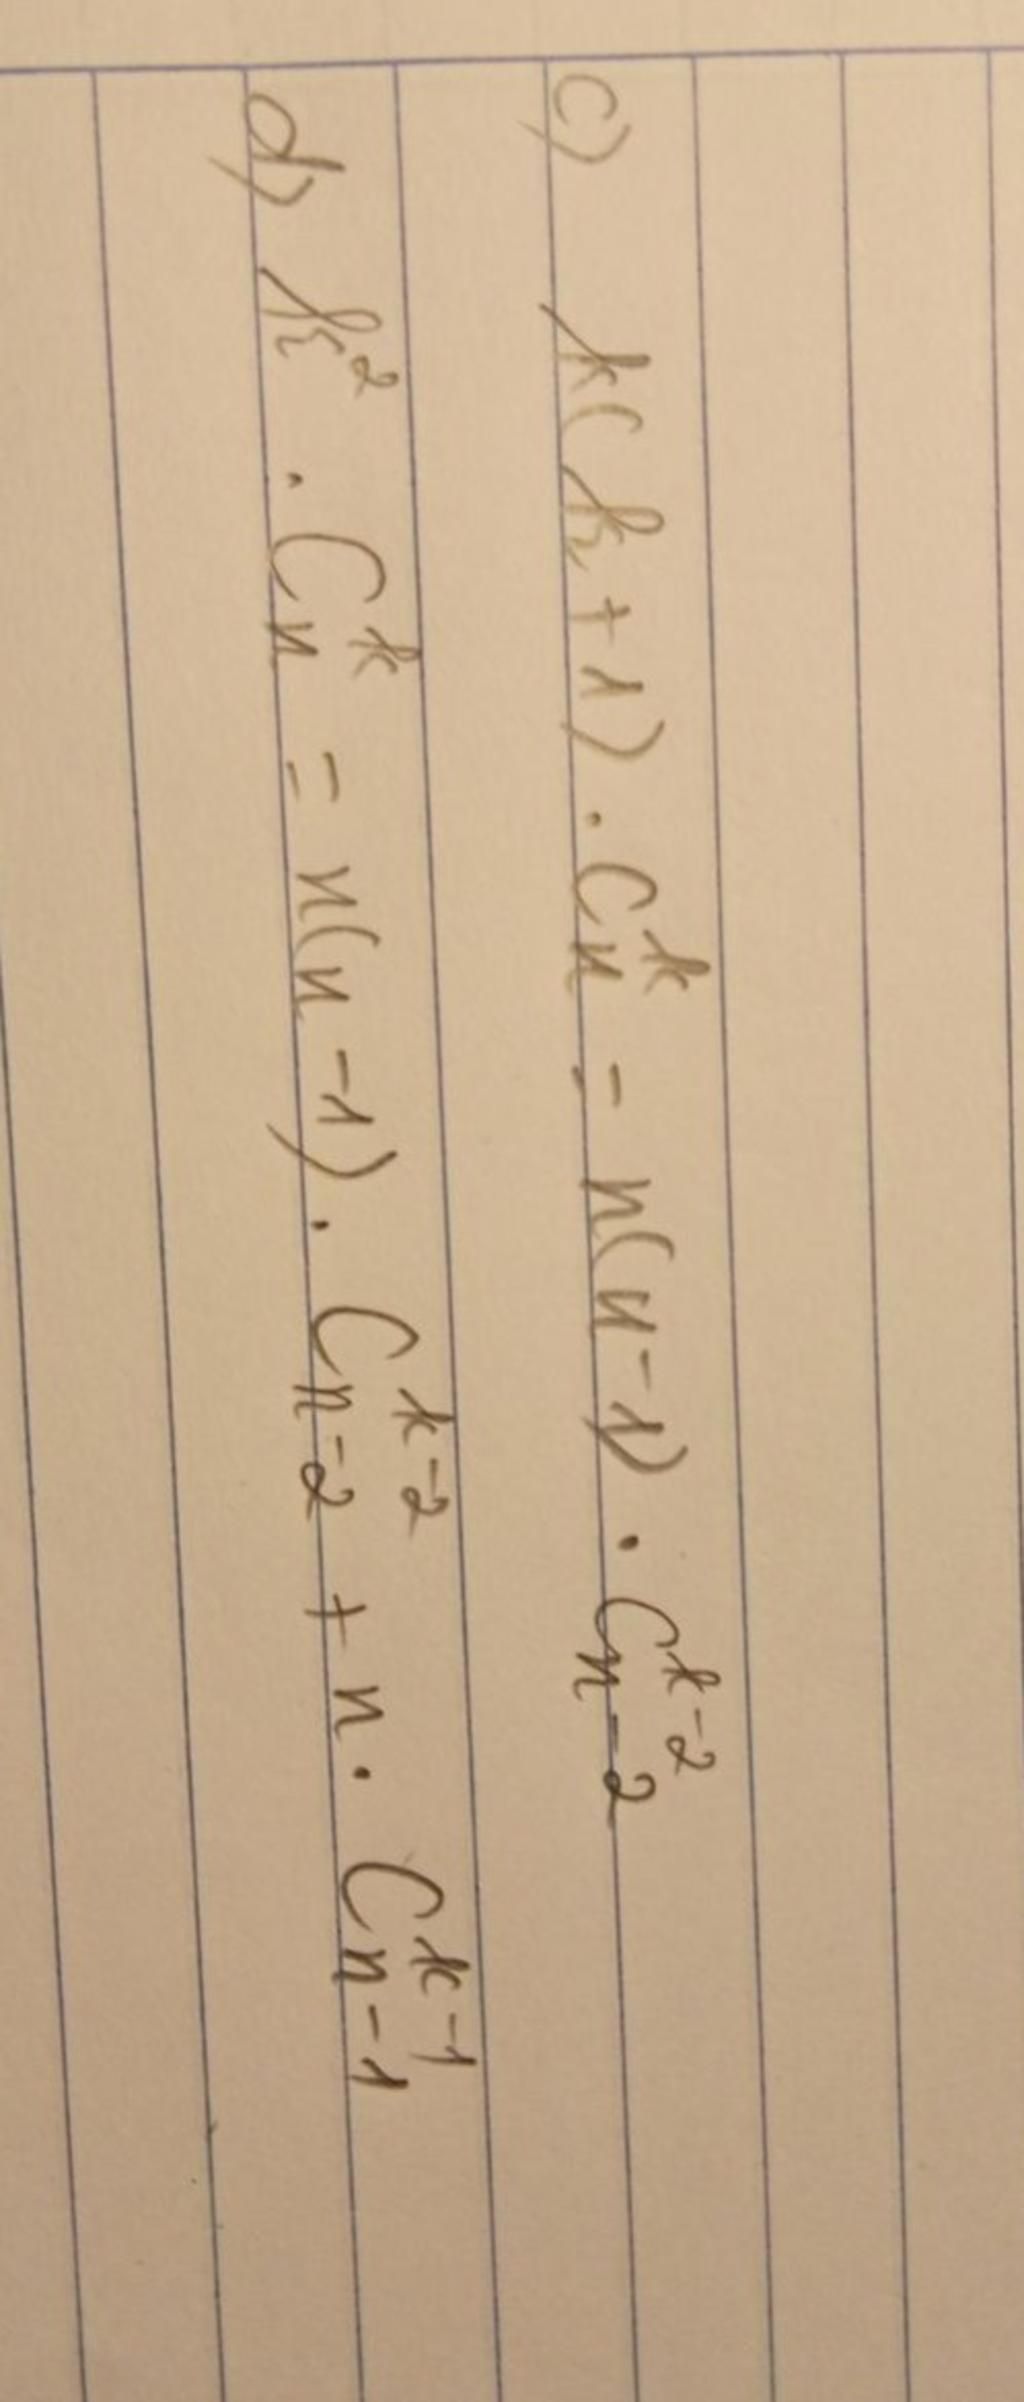 c) k(k+1) . C_n^k = n(n-1) . C_{n-2}^{k-2}
d) k^2 . C_n^k = n(n-1) . C_{n-2}^{k-2} + n . C_{n-1}^{k-1}